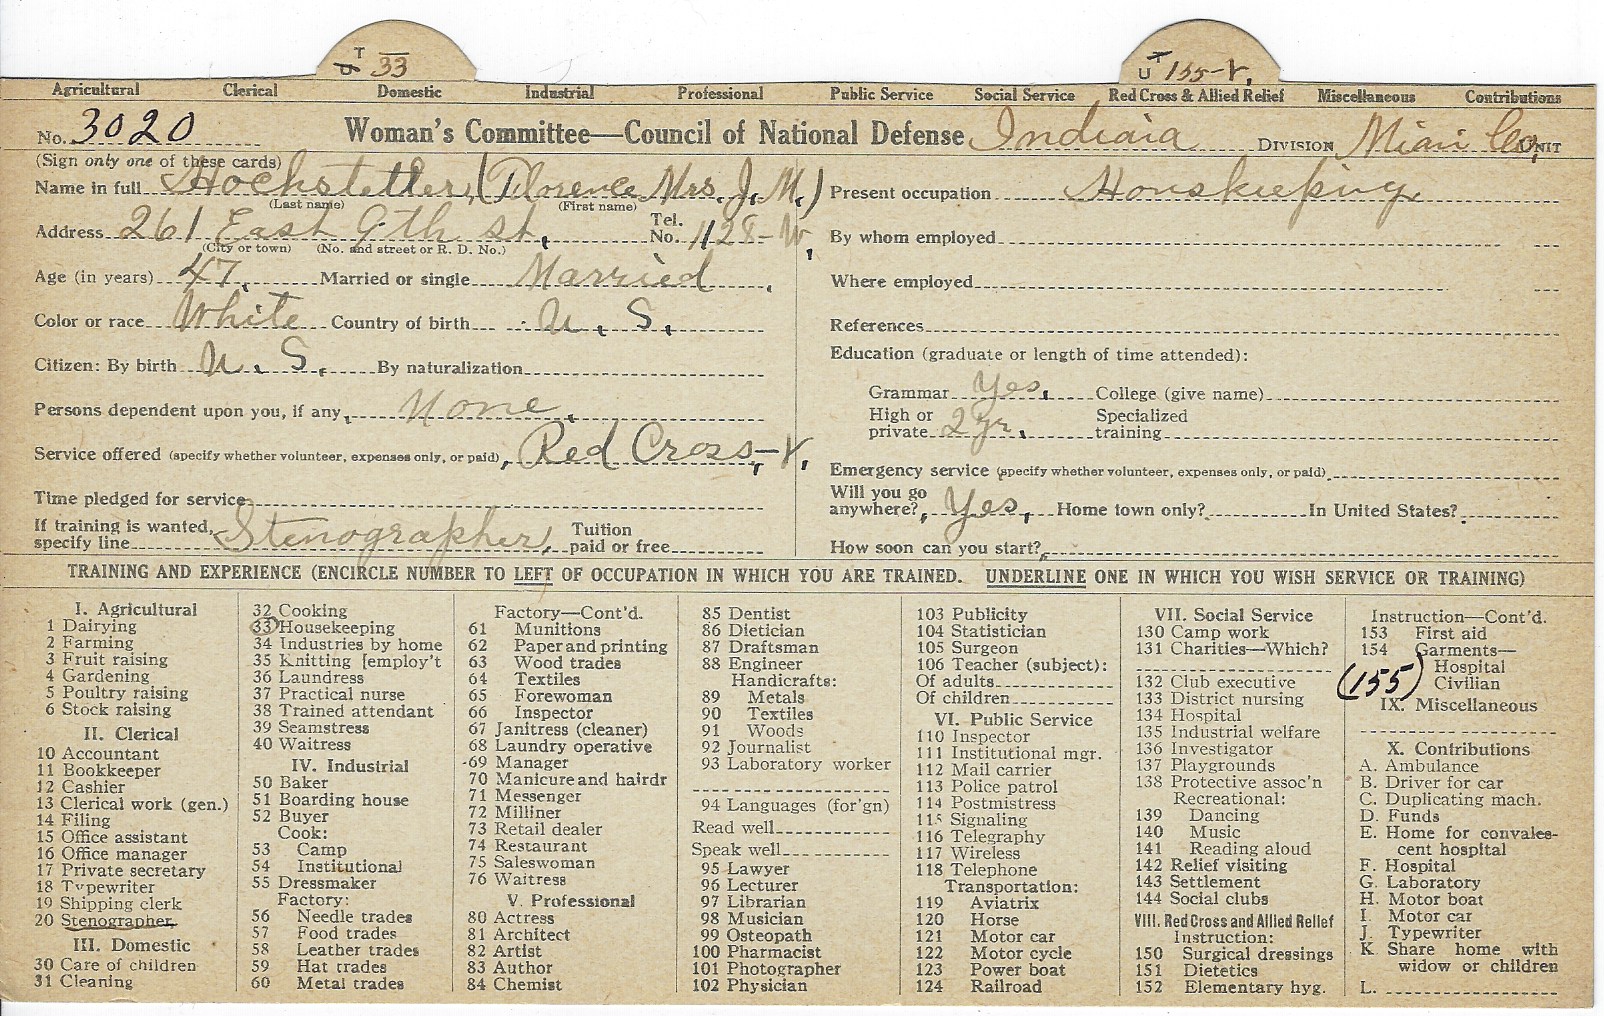 T U 33
U T 155-V.
Agricultural Clerical Domestic Industrial Professional Public Service Social Service Red Cross & Allied Relief Miscellaneous Contributions
No. 3020 Woman's Committee—Council of National Defense Indiaia DIVISION Miaii Co. UNIT
(Sign only one of these cards)
Name in full Hochstetler, (Florence Mrs. J. M.)
(Last name) (First name)
Address 261 East 9th st, Tel. No. 1128-W,
(City or town) (No. and street or R. D. No.)
Age (in years) 47. Married or single Married
Color or race White Country of birth U. S.
Citizen: By birth U. S. By naturalization
Persons dependent upon you, if any, None.
Service offered (specify whether volunteer, expenses only, or paid), Red Cross,-V.
Time pledged for service
If training is wanted, specify line Stenographer, Tuition paid or free
Present occupation Houskeeping
By whom employed
Where employed
References
Education (graduate or length of time attended):
Grammar Yes. College (give name)
High or private 2 yr. Specialized training
Emergency service (specify whether volunteer, expenses only, or paid)
Will you go anywhere?, Yes, Home town only? In United States?
How soon can you start?
TRAINING AND EXPERIENCE (ENCIRCLE NUMBER TO LEFT OF OCCUPATION IN WHICH YOU ARE TRAINED. UNDERLINE ONE IN WHICH YOU WISH SERVICE OR TRAINING)
I. Agricultural
1 Dairying
2 Farming
3 Fruit raising
4 Gardening
5 Poultry raising
6 Stock raising
II. Clerical
10 Accountant
11 Bookkeeper
12 Cashier
13 Clerical work (gen.)
14 Filing
15 Office assistant
16 Office manager
17 Private secretary
18 Typewriter
19 Shipping clerk
20 Stenographer
III. Domestic
30 Care of children
31 Cleaning
32 Cooking
33 Housekeeping
34 Industries by home
35 Knitting [employ't
36 Laundress
37 Practical nurse
38 Trained attendant
39 Seamstress
40 Waitress
IV. Industrial
50 Baker
51 Boarding house
52 Buyer
Cook:
53 Camp
54 Institutional
55 Dressmaker
Factory:
56 Needle trades
57 Food trades
58 Leather trades
59 Hat trades
60 Metal trades
Factory—Cont'd.
61 Munitions
62 Paper and printing
63 Wood trades
64 Textiles
65 Forewoman
66 Inspector
67 Janitress (cleaner)
68 Laundry operative
69 Manager
70 Manicure and hairdr
71 Messenger
72 Milliner
73 Retail dealer
74 Restaurant
75 Saleswoman
76 Waitress
V. Professional
80 Actress
81 Architect
82 Artist
83 Author
84 Chemist
85 Dentist
86 Dietician
87 Draftsman
88 Engineer
Handicrafts:
89 Metals
90 Textiles
91 Woods
92 Journalist
93 Laboratory worker
94 Languages (for'gn)
Read well
Speak well
95 Lawyer
96 Lecturer
97 Librarian
98 Musician
99 Osteopath
100 Pharmacist
101 Photographer
102 Physician
103 Publicity
104 Statistician
105 Surgeon
106 Teacher (subject):
Of adults
Of children
VI. Public Service
110 Inspector
111 Institutional mgr.
112 Mail carrier
113 Police patrol
114 Postmistress
115 Signaling
116 Telegraphy
117 Wireless
118 Telephone
Transportation:
119 Aviatrix
120 Horse
121 Motor car
122 Motor cycle
123 Power boat
124 Railroad
VII. Social Service
130 Camp work
131 Charities—Which?
132 Club executive
133 District nursing
134 Hospital
135 Industrial welfare
136 Investigator
137 Playgrounds
138 Protective assoc'n
Recreational:
139 Dancing
140 Music
141 Reading aloud
142 Relief visiting
143 Settlement
144 Social clubs
VIII. Red Cross and Allied Relief
Instruction:
150 Surgical dressings
151 Dietetics
152 Elementary hyg.
Instruction—Cont'd.
153 First aid
154 Garments—
Hospital
(155) Civilian
IX. Miscellaneous
X. Contributions
A. Ambulance
B. Driver for car
C. Duplicating mach.
D. Funds
E. Home for convales-
cent hospital
F. Hospital
G. Laboratory
H. Motor boat
I. Motor car
J. Typewriter
K Share home with
widow or children
L.